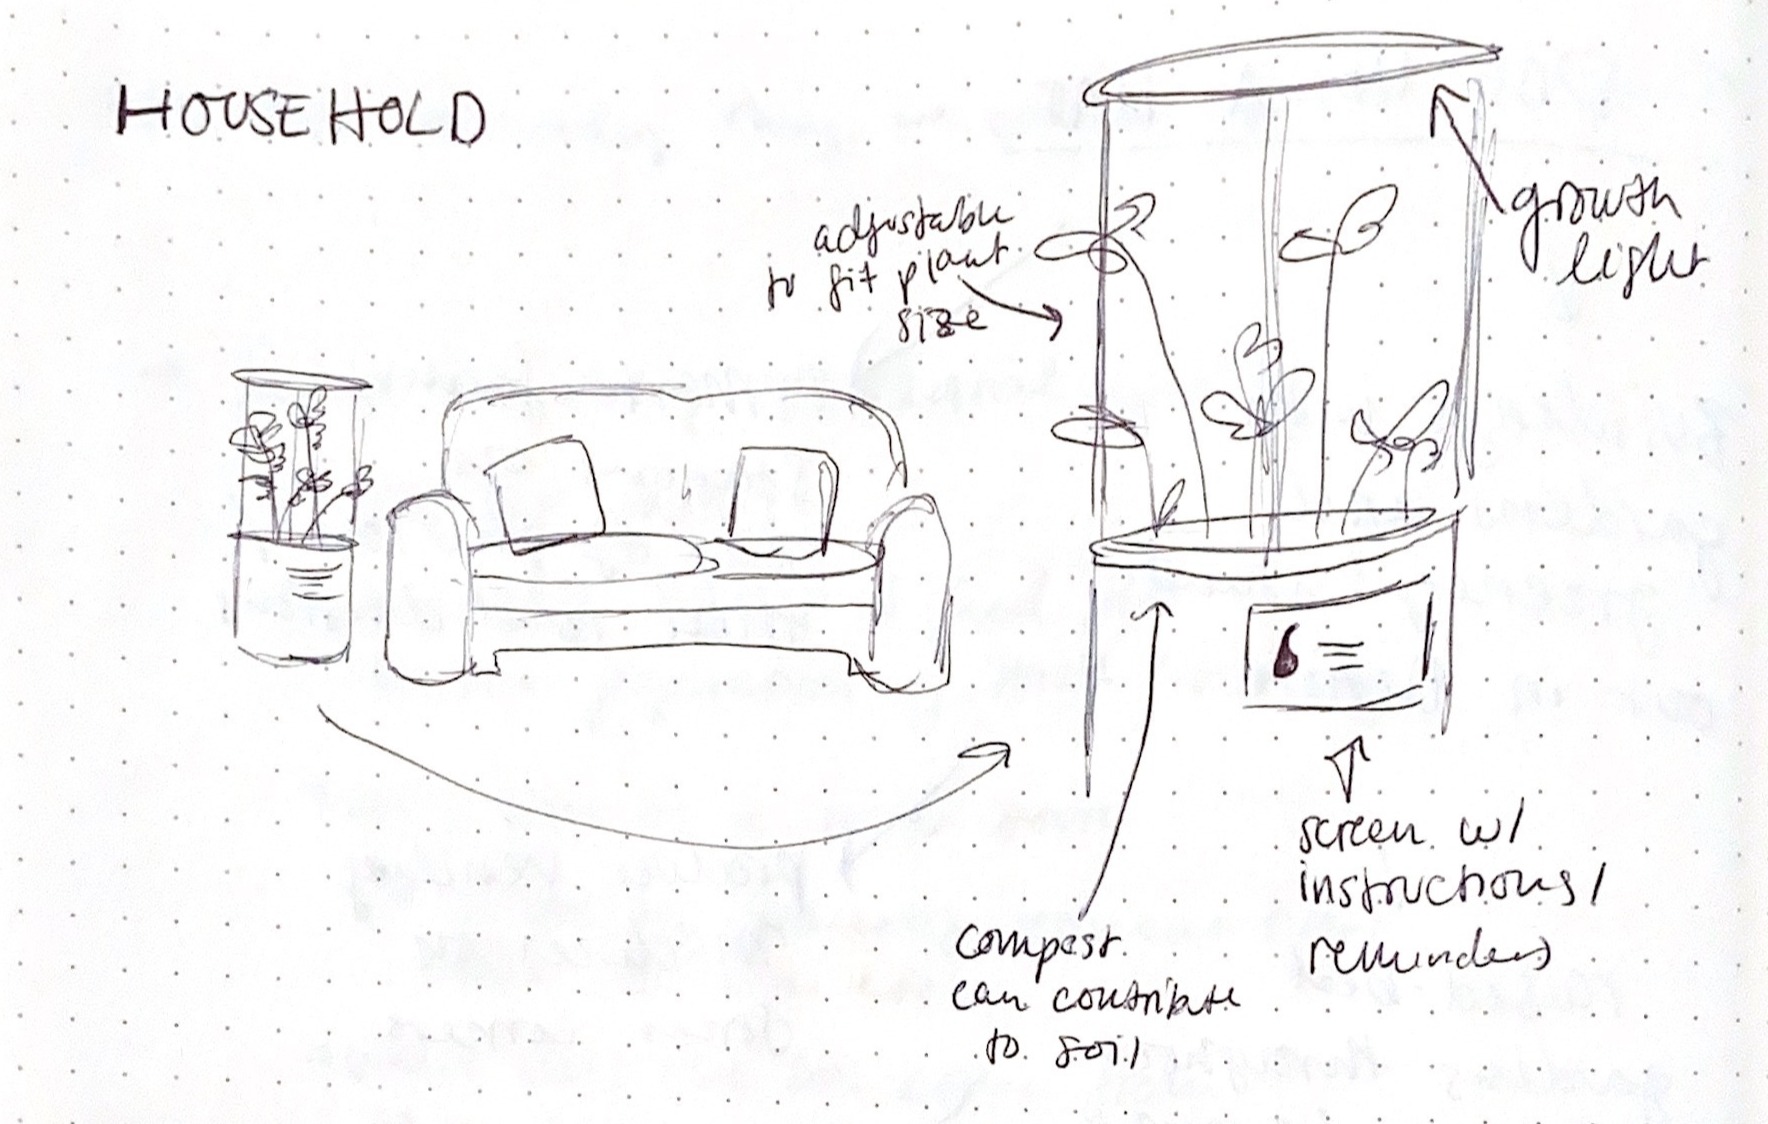 HOUSEHOLD
adjustable
to fit plant
size
growth
light
screen w/
instructions/
reminders
compost
can contribute
to soil